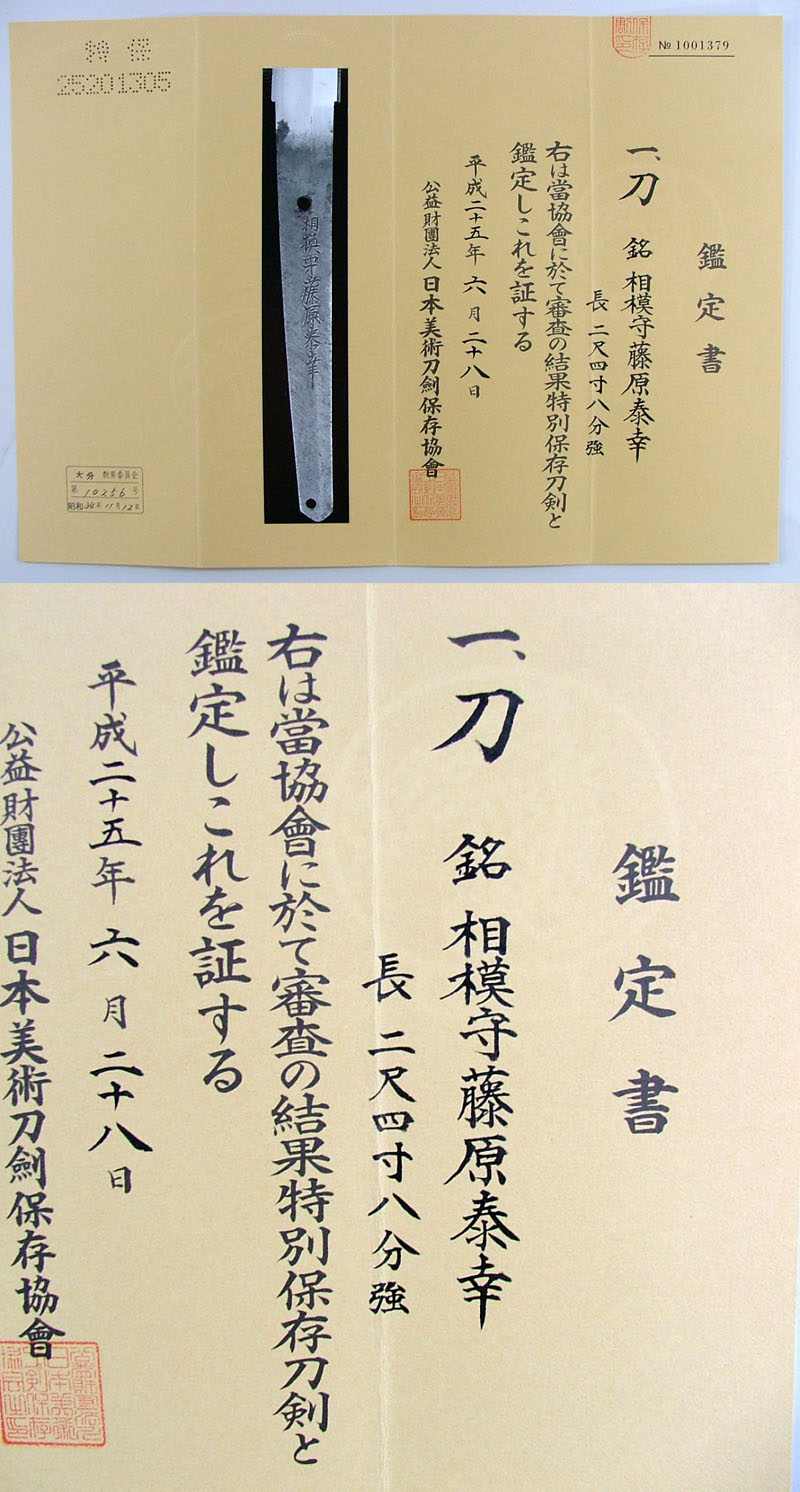 № 1001379
鑑定書
一、刀 銘 相模守藤原泰幸
長 二尺四寸八分強
右は當協會に於て審査の結果特別保存刀剣と
鑑定しこれを証する
平成二十五年 六月二十八日
公益財團法人 日本美術刀劍保存協會
相模守藤原泰幸
特保
25201305
大分 教育委員会
第 10256 号
11月12日
鑑定書
一、刀 銘 相模守藤原泰幸
長 二尺四寸八分強
右は當協會に於て審査の結果特別保存刀剣と
鑑定しこれを証する
平成二十五年 六月二十八日
公益財團法人 日本美術刀劍保存協會